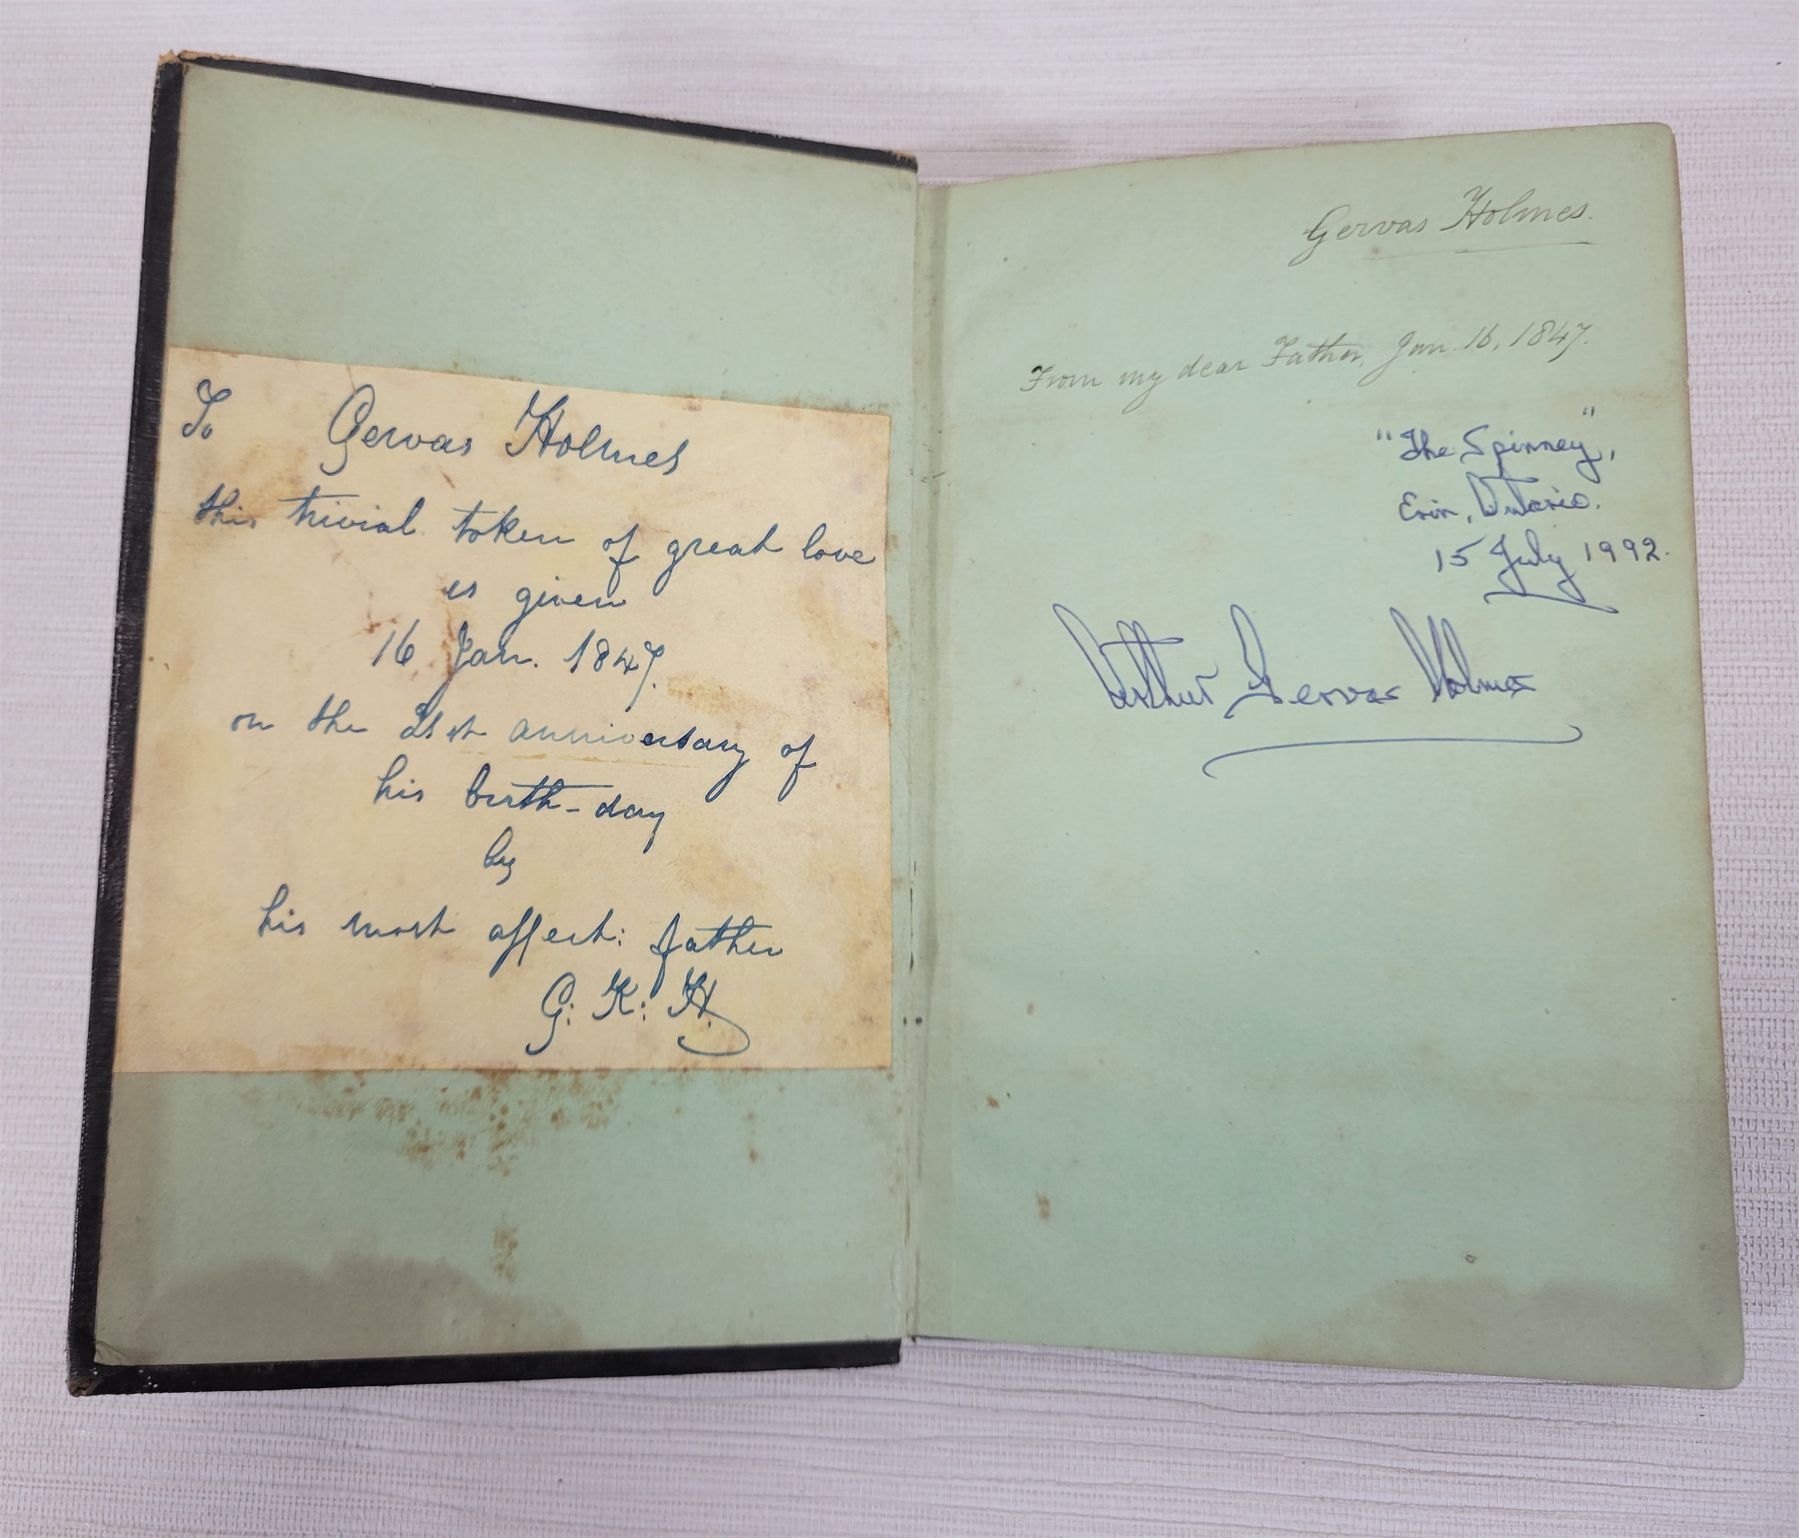 To Gervas Holmes
this trivial token of great love
is given
16 Jan. 1847.
on the 21st anniversary of
his birth-day
by
his most affect: father
G: K: H.
Gervas Holmes.
From my dear Father, Jan. 16, 1847.
"The Spinney",
Erin, Ontario.
15 July 1992.
Arthur Gervas Holmes